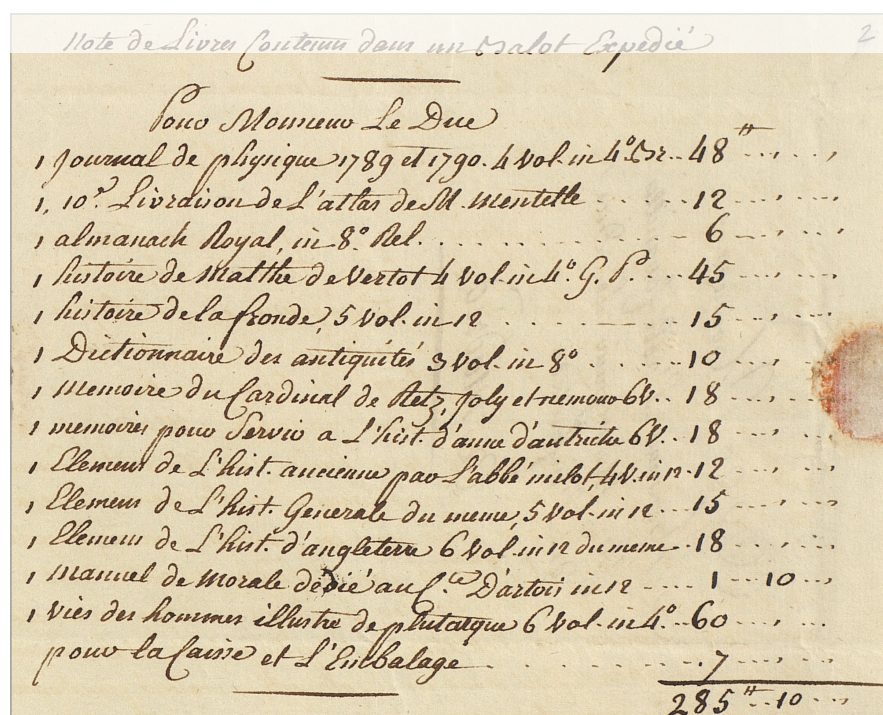 Note de Livres Contenus dans un Balot Expedié
2
Pour Monsieur Le Duc
1 Journal de physique 1789 et 1790. 4 vol. in 4° Br. 48 ₶
1, 10e. Livraison de L'atlas de M. mentelle 12
1 almanach Royal, in 8° Rel. 6
1 histoire de Malthe de Vertot 4 vol. in 4° G. P. 45
1 histoire de la fronde, 5 vol. in 12 15
1 Dictionnaire des antiquités 3 vol. in 8° 10
1 memoire du Cardinal de Retz, Joly et nemour 6 V. 18
1 memoires pour Servir a L'hist. d'anne d'autriche 6 V. 18
1 Elemens de L'hist. ancienne par L'abbé milot, 4 V. in 12 12
1 Elemens de L'hist. Generale du meme, 5 Vol. in 12 15
1 Elemens de L'hist. d'angleterre 6 Vol. in 12 du meme 18
1 manuel de Morale dédié au C.te D'artois in 12 1 10
1 vies des hommes illustre de plutarque 6 Vol. in 4° 60
pour la Caisse et L'Embalage 7
285 ₶ 10